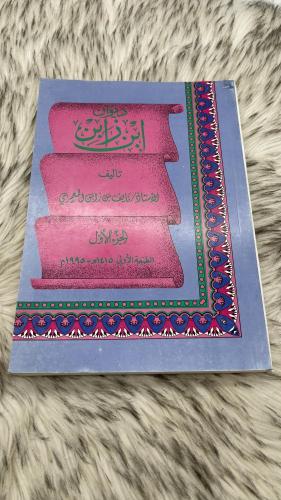 ديوان
ابن زابن
تأليف
الأستاذ/ نايف بن زابن المعمري
الجزء الأول
الطبعة الأولى ١٤١٥هـ - ١٩٩٥م